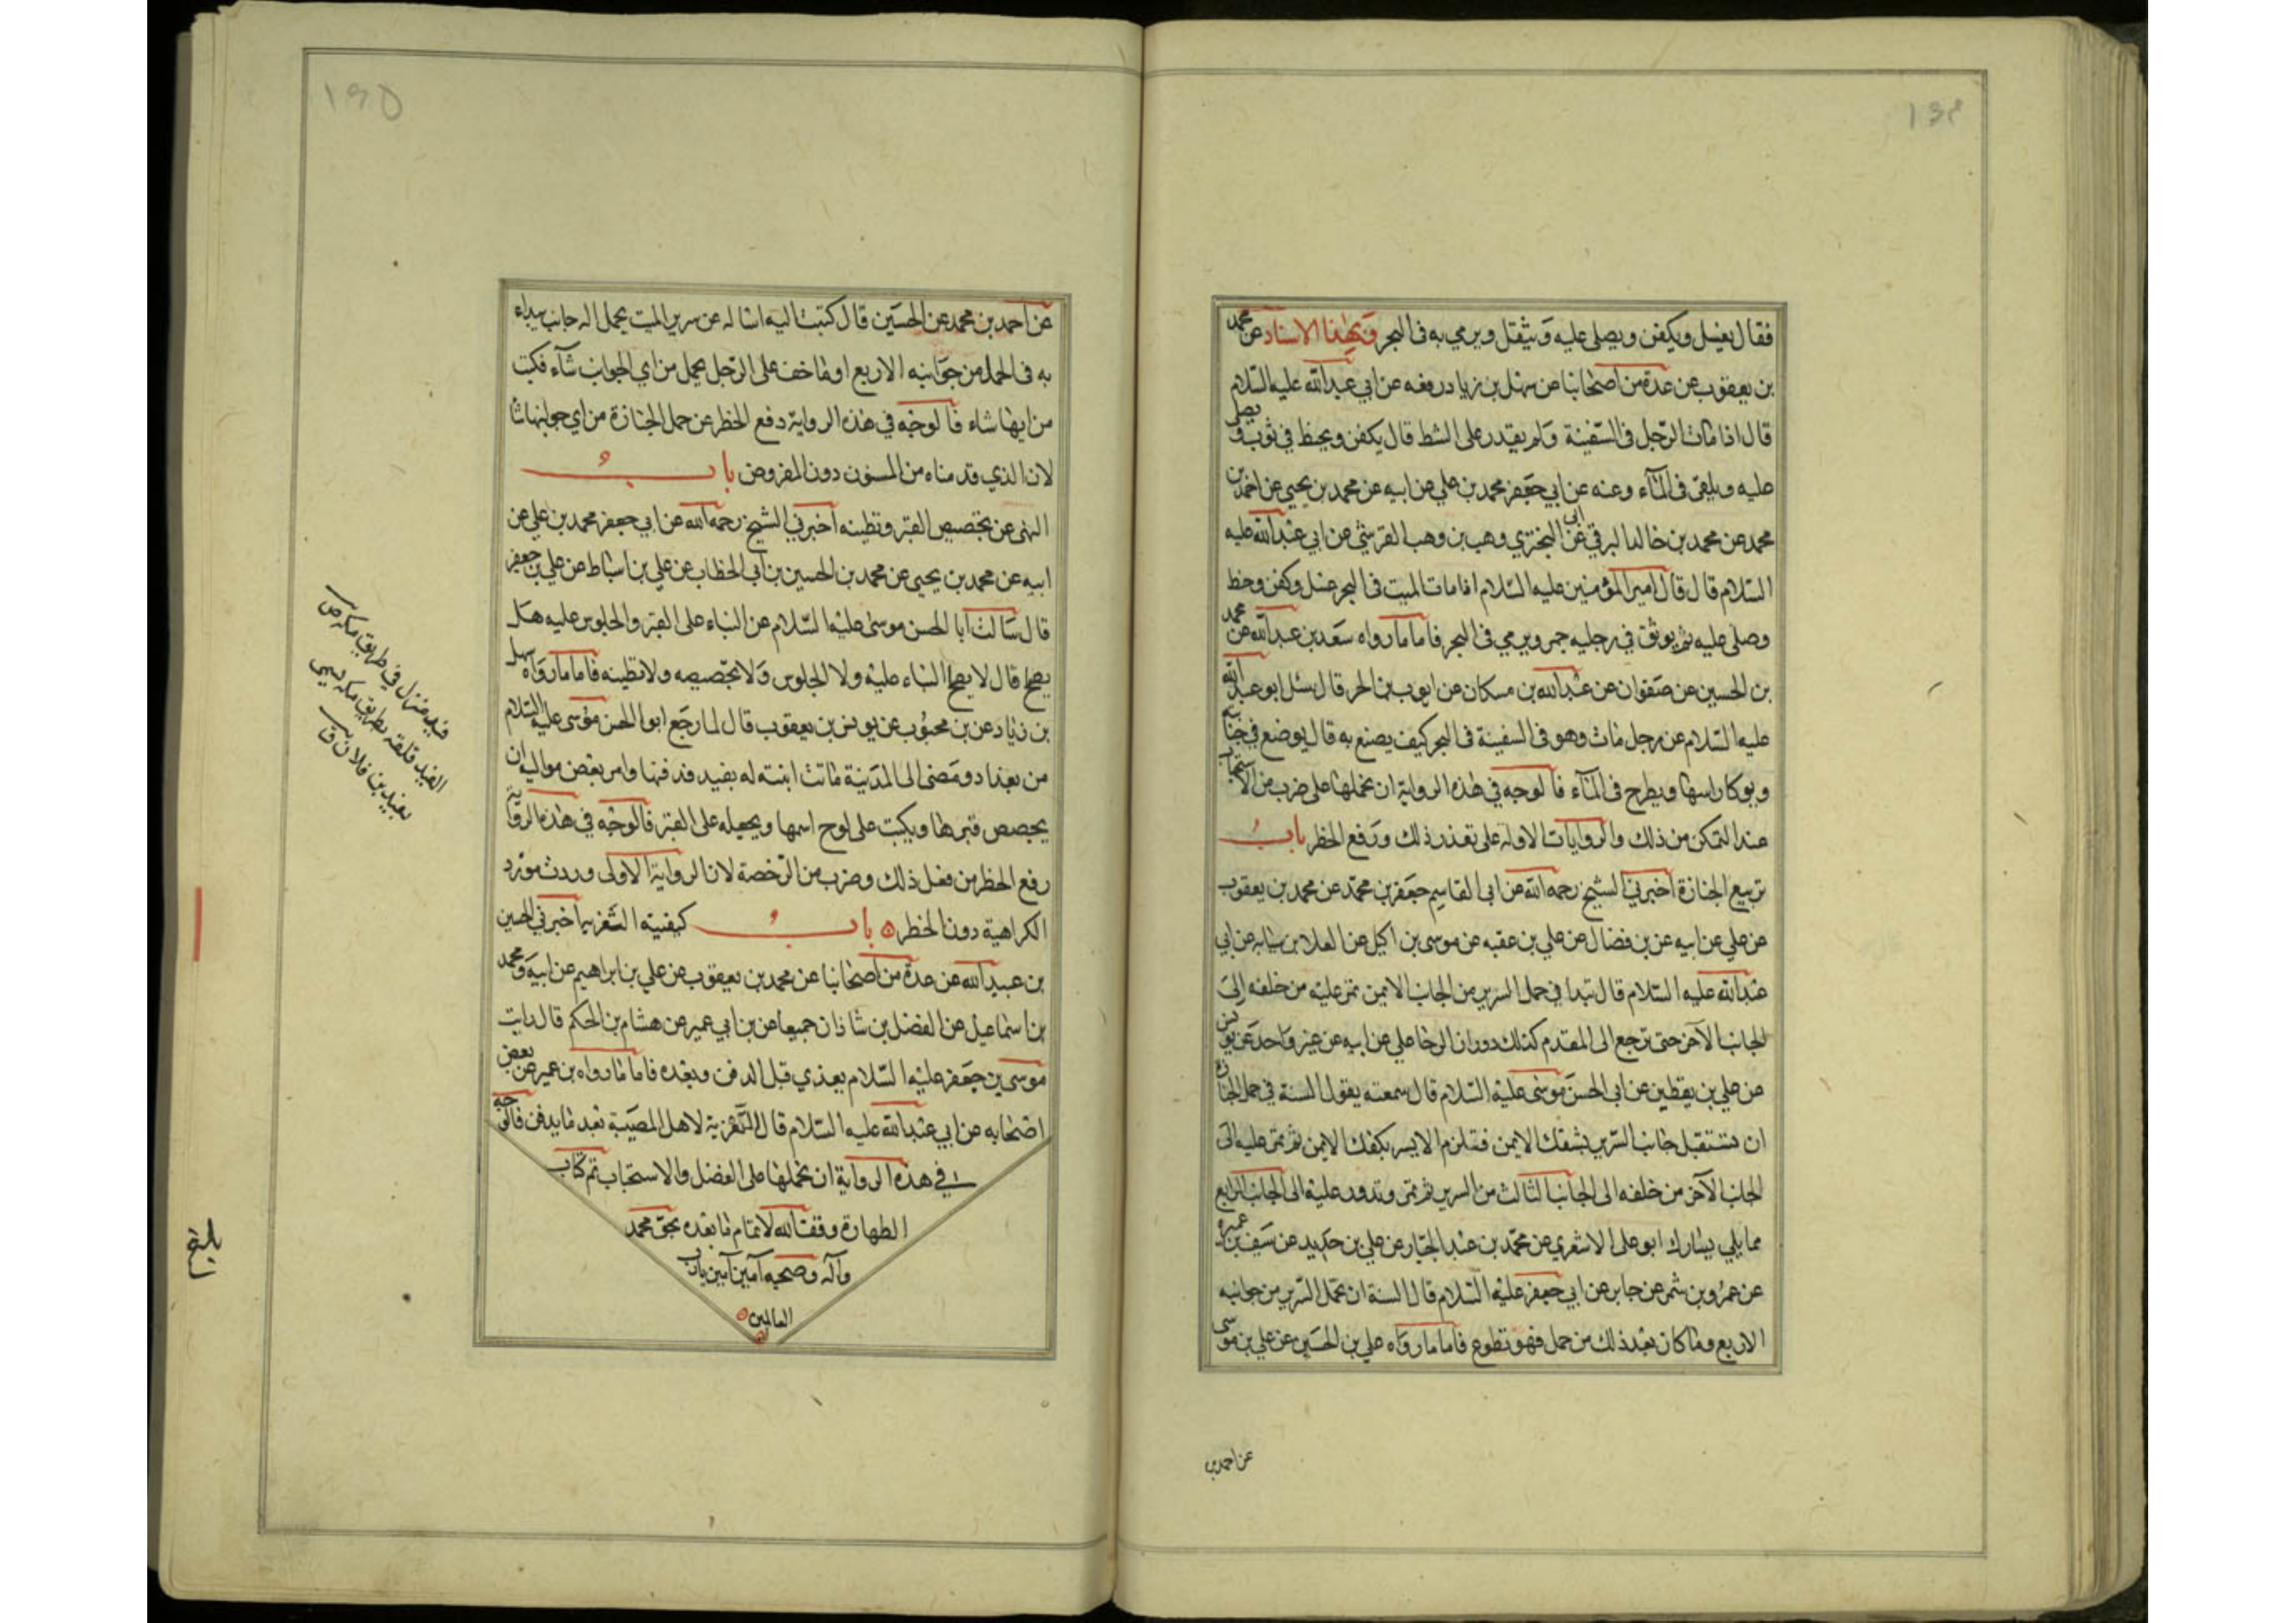 ١٩٤
فقال يغسل ويكفن ويصلى عليه ويثقل ويرمي به في البحر وبهذا الاسناد عن محمد
بن يعقوب عن عدة من اصحابنا عن سهل بن زياد رفعه عن ابي عبد الله عليه السلام
قال اذا مات الرجل في السفينة ولم يقدر على الشط قال يكفن ويحنط في ثوب ويصلى
عليه ويلقى في المآء وعنه عن ابي جعفر محمد بن علي عن ابيه عن محمد بن يحيى عن احمد بن
محمد عن محمد بن خالد البرقي عن ابي البختري وهب بن وهب القرشي عن ابي عبد الله عليه
السلام قال قال امير المؤمنين عليه السلام اذا مات الميت في البحر غسل وكفن وحنط
وصلى عليه ثم يوثق في رجليه حجر ويرمي في البحر فاما ما رواه سعد بن عبد الله عن محمد
بن الحسين عن صفوان عن عبد الله بن مسكان عن ايوب بن الحر قال سئل ابو عبد الله
عليه السلام عن رجل مات وهو في السفينة في البحر كيف يصنع به قال يوضع في خابية
ويوكا راسها ويطرح في المآء فالوجه في هذه الرواية ان نحملها على ضرب من الاستحباب
عند التمكن من ذلك والروايات الاوله على تعذر ذلك ورفع الحظر باب
تربيع الجنازة اخبرني الشيخ رحمه الله عن ابي القاسم جعفر بن محمد عن محمد بن يعقوب
عن علي عن ابيه عن بن فضال عن علي بن عقبه عن موسى بن اكيل عن العلا بن سيابه عن ابي
عبد الله عليه السلام قال تبدا في حمل السرير من الجانب الايمن ثم تمر عليه من خلفه الى
الجانب الآخر حتى ترجع الى المقدم كذلك دوران الرحا علي عن ابيه عن غير واحد عن يونس
عن علي بن يقطين عن ابي الحسن موسى عليه السلام قال سمعته يقول السنة في حمل الجنازة
ان تستقبل جانب السرير بشقك الايمن فتلزم الايسر بكفك الايمن ثم تمر عليه الى
الجانب الآخر من خلفه الى الجانب الثالث من السرير ثم تمر وتدور عليه الى الجانب الرابع
مما يلي يسارك ابو على الاشعري عن محمد بن عبد الجبار عن علي بن حديد عن سيف بن عميره
عن عمرو بن شمر عن جابر عن ابي جعفر عليه السلام قال السنة ان تحمل السرير من جوانبه
الاربع وما كان بعد ذلك من حمل فهو تطوع فاما ما رواه علي بن الحسين عن علي بن موسى
عن احمد بن
١٩٥
عن احمد بن محمد عن الحسين قال كتبت اليه اساله عن سرير الميت يحمل اله جانب يبداء
به في الحمل من جوانبه الاربع او ما خف على الرجل يحمل من اي الجوانب شآء فكتب
من ايها شاء فالوجه في هذه الرواية دفع الحظر عن حمل الجنازة من اي جوانبها شا
لان الذي قدمناه من المسنون دون المفروض باب
النهى عن تجصيص القبر وتطينه اخبرني الشيخ رحمه الله عن ابي جعفر محمد بن علي عن
ابيه عن محمد بن يحيى عن محمد بن الحسين بن ابي الخطاب عن علي بن اسباط عن علي بن جعفر
قال سالت ابا الحسن موسى عليه السلام عن البناء على القبر والجلوس عليه هل
يصح قال لا يصح البناء عليه ولا الجلوس ولا تجصيصه ولا تطينه فاما ما رواه سهل
بن زياد عن بن محبوب عن يونس بن يعقوب قال لما رجع ابو الحسن موسى عليه السلام
من بغداد ومضى الى المدينة ماتت ابنته له بفيد فدفنها وامر بعض مواليه ان
يجصص قبرها ويكتب على لوح اسمها ويجعله على القبر فالوجه في هذه الرواية
رفع الحظر من فعل ذلك وضرب من الرخصة لان الرواية الاولى وردت مورد
الكراهية دون الحظر باب كيفية التعزية اخبرني الحسين
بن عبيد الله عن عدة من اصحابنا عن محمد بن يعقوب عن علي بن ابراهيم عن ابيه ومحمد
بن اسماعيل عن الفضل بن شاذان جميعا عن بن ابي عمير عن هشام بن الحكم قال رايت
موسى بن جعفر عليه السلام يعذي قبل الدفن وبعده فاما ما رواه بن عمير عن بعض
اصحابه عن ابي عبد الله عليه السلام قال التعزية لاهل المصيبة بعد ما يدفن فالوجه
في هذه الرواية ان نحملها على الفضل والاستحباب تم كتاب
الطهارة وفقنا الله لاتمام ما بعده بحق محمد
وآله وصحبه آمين آمين يارب
العالمين
فيد منزل في طريق مكه ص
الفيد قلعة بطريق مكه سمي
بفيد بن فلان ق
بلغ